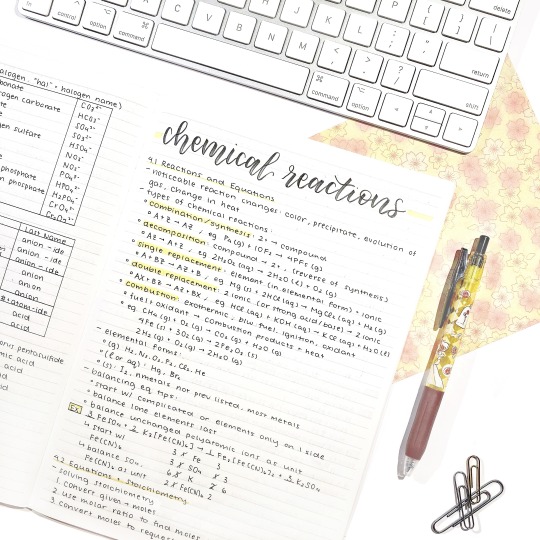 fn
control
option
command
Z
X
C
V
B
N
M
H
J
K
L
command
option
return
shift
delete
halogen "hal" + halogen name)
carbonate
CO₃²⁻
rogen carbonate
HCO₃⁻
SO₄²⁻
SO₃²⁻
ogen sulfate
HSO₄⁻
NO₃⁻
NO₂⁻
PO₄³⁻
HPO₄²⁻
n phosphate
H₂PO₄⁻
CrO₄²⁻
Cr₂O₇²⁻
Last Name
anion -ide
anion -ide
anion -ide
anion
anion
anion
acid
acid
orus pentasulfide
omic acid
acid
chemical reactions
4.1 Reactions and Equations
- noticeable reaction changes: color, precipitate, evolution of
gas, change in heat
- types of chemical reactions:
° combination/synthesis: 2+ → compound
° A+Z → AZ, eg P₄(g) + 10F₂ → 4PF₅(g)
° decomposition: compound → 2+, (reverse of synthesis)
° AZ → A+Z, eg 2H₂O₂(aq) → 2H₂O(l) + O₂(g)
° single replacement: element (in elemental form) + ionic
° A+BZ → AZ+B, eg Mg(s) + 2HCl(aq) → MgCl₂(aq) + H₂(g)
° double replacement: 2 ionic (or strong acid/base) → 2 ionic
° AX+BZ → AZ+BX, eg HCl(aq) + KOH(aq) → KCl(aq) + H₂O(l)
° combustion: exothermic, b/w fuel, ignition, oxidant
° fuel + oxidant → combustion products + heat
° eg. CH₄(g) + O₂(g) → CO₂(g) + H₂O(g)
4Fe(s) + 3O₂(g) → 2Fe₂O₃(s)
2H₂(g) + O₂(g) → 2H₂O(g)
- elemental forms:
° (g): H₂, N₂, O₂, F₂, Cl₂, He
° (l or aq): Hg, Br₂
° (s): I₂, nmetals not prev listed, most metals
- balancing eq tips:
° start w/ complicated or elements only on 1 side
° balance lone elements last
° balance unchanged polyatomic ions as unit
Ex
↳ start w/
Fe(CN)₆
↳ balance SO₄,
Fe(CN)₆ as unit
4.2 Equations + Stoichiometry
- solving stoichiometry
1. convert given → moles
2. use molar ratio to find moles
3. convert moles to